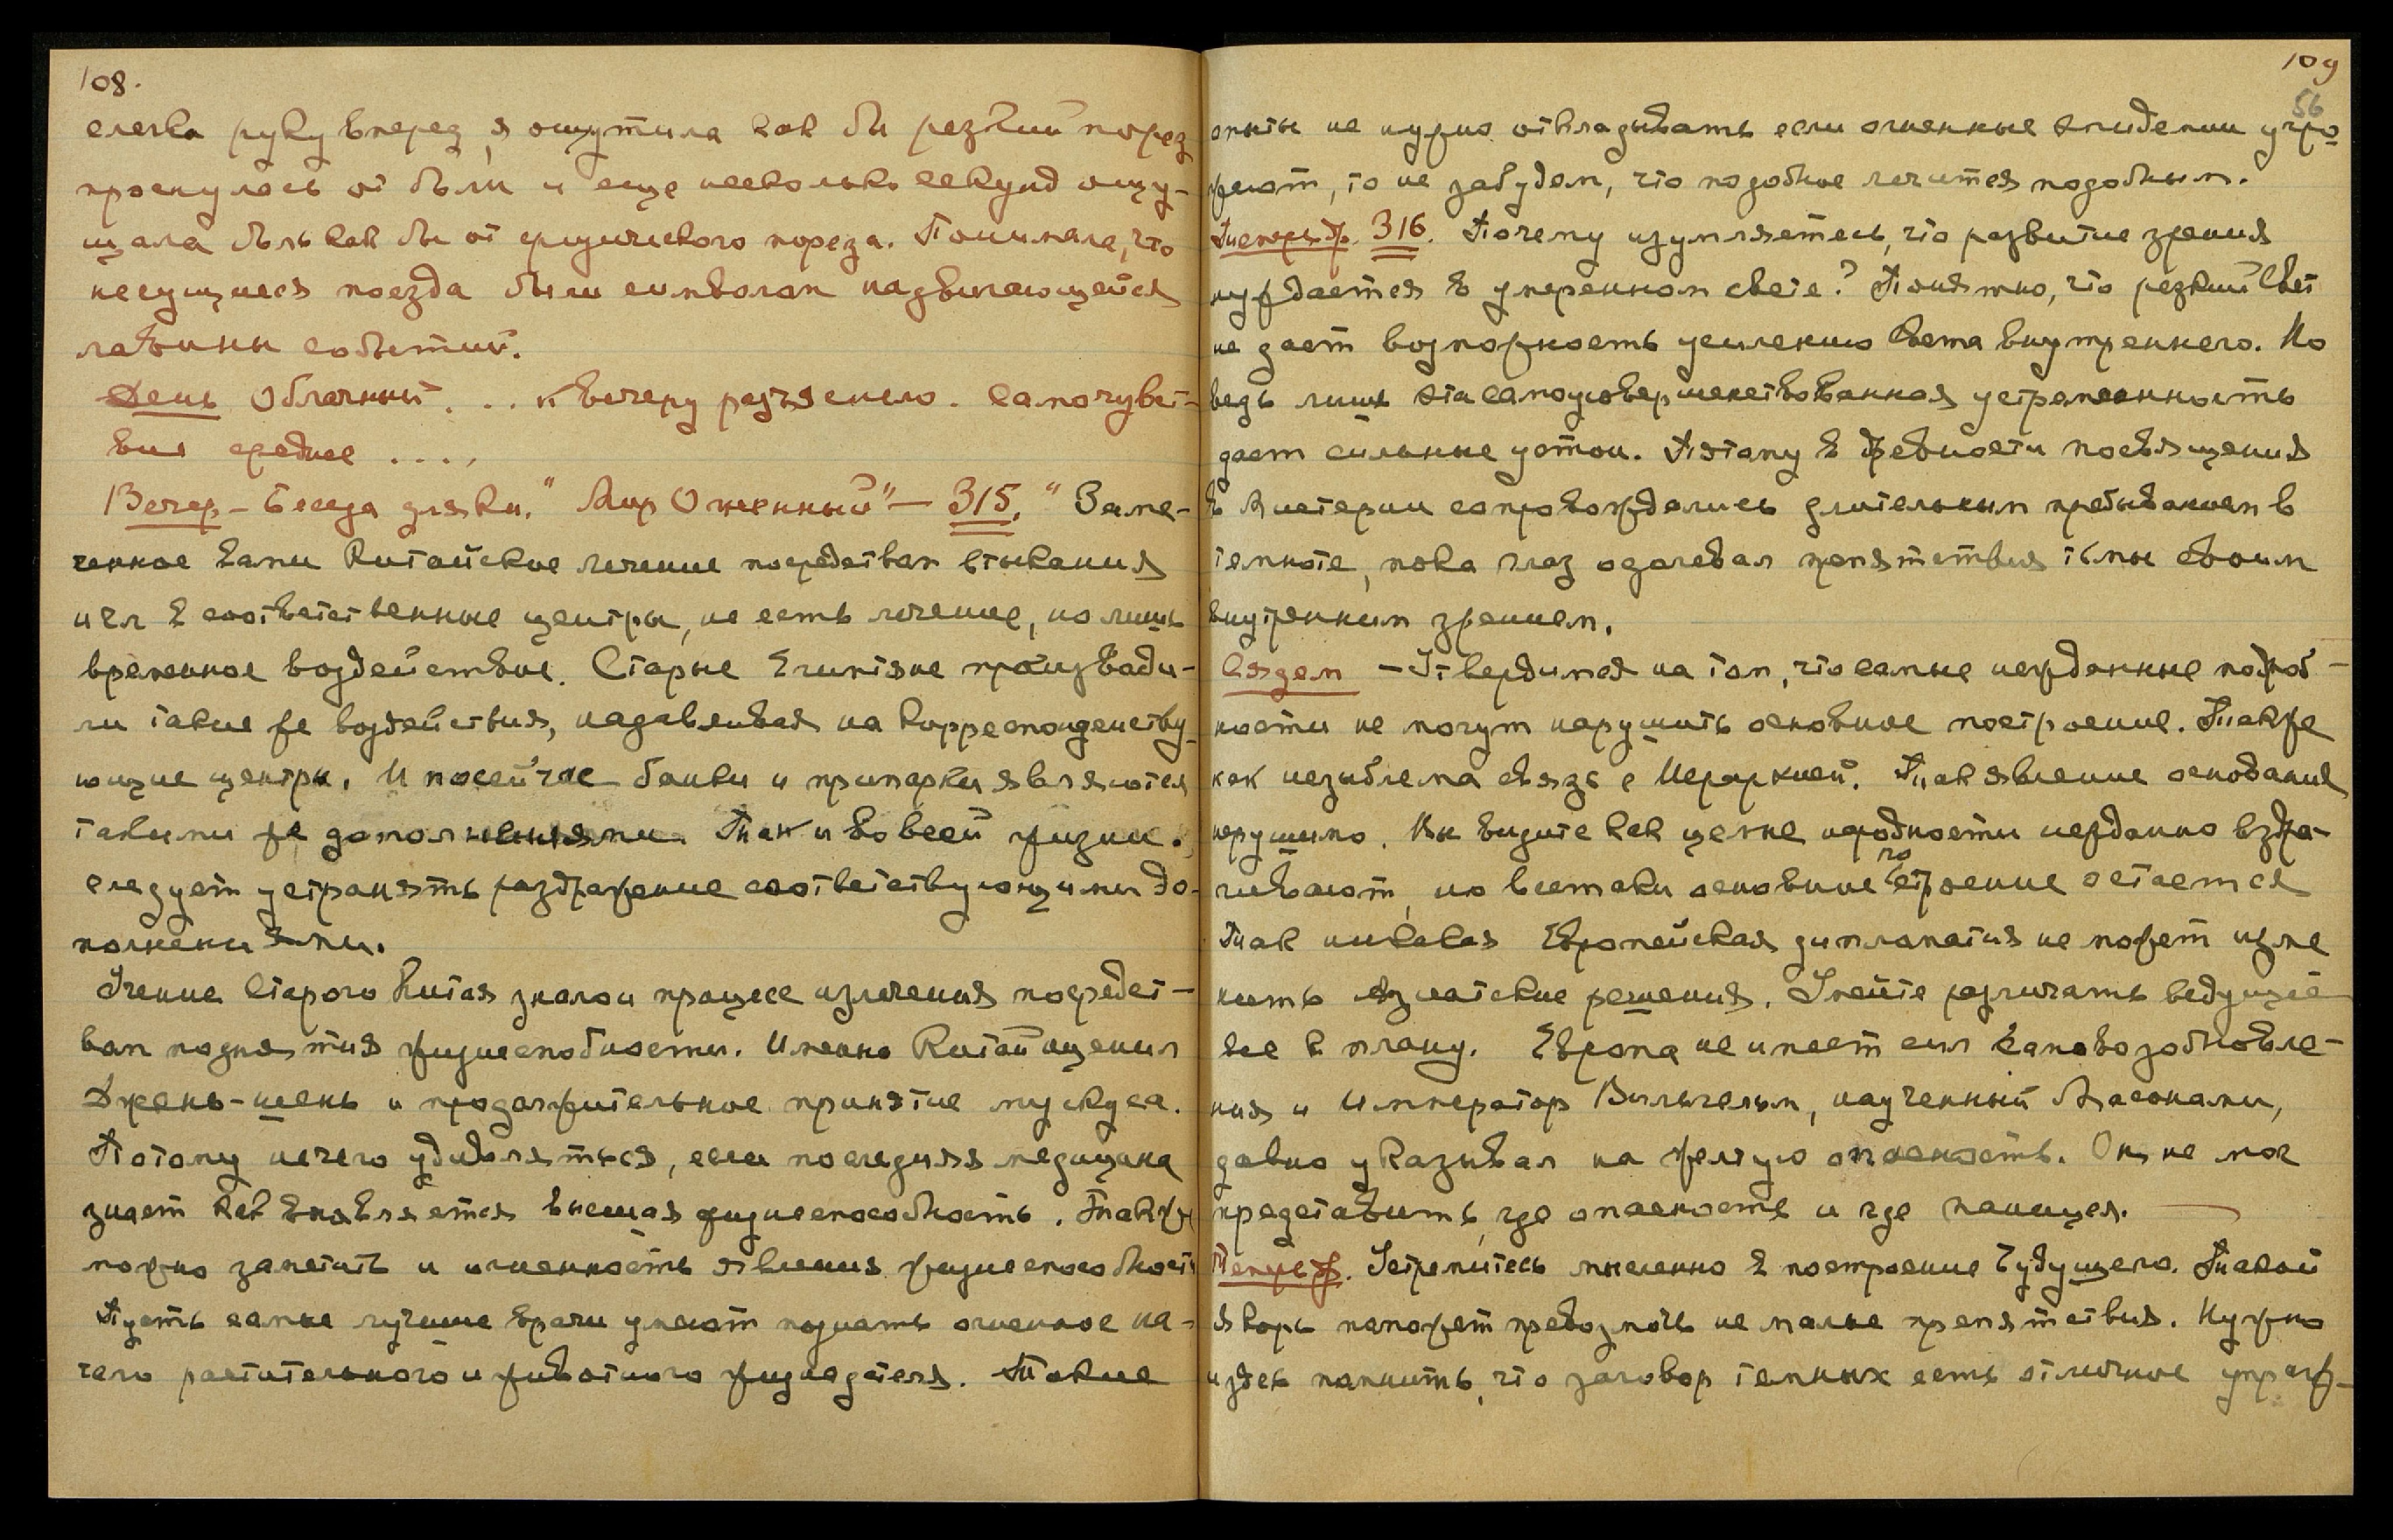 108.
слегка руку вперед, я ощутила как бы резкий порез
проснулась от боли и еще несколько секунд ощу-
щала боль как бы от физического пореза. Понимала, что
несущиеся поезда были символом надвигающейся
лавины событий.
День Облачный. .. к вечеру разъяснило. Самочувст-
вия среднее ....
Вечер – Беседа для Кн. " Мир Огненный" – 315. " Заме-
ченное вами Китайское лечение посредством втыкания
игл в соответственные центры, не есть лечение, но лишь
временное воздействие. Старые Египтяне производи-
ли такие же воздействия, надавливая на корреспонденству-
ющие центры. И посейчас банки и припарки являются
такими же дополнениями. Так и во всей жизни.
следует устранять раздражение соответствующими до-
полнениями.
Учение Старого Китая знало и процесс излечения посредст-
вом поднятия жизнеспобности. Именно Китай оценил
Джень-шень и продолжительное принятие мускуса.
Потому нечего удивляться, если последняя медицина
знает как выявляется высшая жизнеспособность. Такж
можно заметить и огненность явления жизнеспособности
Пусть самые лучшие врачи умеют познать огненное на-
чало растительного и животного жизнедателя. Такие
109
56
опыты не нужно откладывать если огненные эпидемии угро-
жают, то не забудем, что подобное лечится подобным.
316. Почему изумляетесь, что развитие зрения
нуждается в умеренном свете? Понятно, что резкий Свет
не дает возможность усилению Света внутреннего. Но
ведь лишь эта самоусовершенствованная устремленность
дает сильные устои. Поэтому в древности посвящения
в Мистерии сопровождались длительным пребыванием в
темноте, пока глаз одолевал препятствия тьмы своим
внутренним зрением.
Сядем – Утвердимся на том, что самые нежданные подроб-
ности не могут нарушить основное построение. Также
как незыблема связь с Иерархией. Так явление основания
нерушимо. Вы видите как целые народности нежданно
но всетаки основние построение остается
Так никакая Европейская дипломатия не может изме
нить Азиатские решения. Умейте различать ведущее
все к плану. Европа не имеет сил Самовозобновле-
ния и Император Вильгельм, наученный Масонами,
давно указывал на желтую опасность. Он не мог
представить, где опасность и где панацея. —
Устремитесь мысленно в построение Будущего. Такой
якорь поможет превозмочь не малые препятствия. Нужно
здесь помнить, что заговор темных есть отличное упраж-